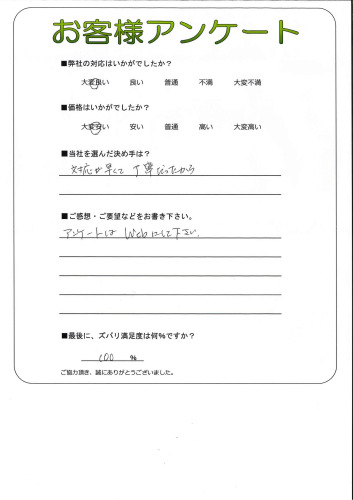 お客様アンケート
■弊社の対応はいかがでしたか？
大変良い 良い 普通 不満 大変不満
■価格はいかがでしたか？
大変安い 安い 普通 高い 大変高い
■当社を選んだ決め手は？
対応が早くて 丁寧だったから
■ご感想・ご要望などをお書き下さい。
アンケートは Webにして下さい.
■最後に、ズバリ満足度は何%ですか？
100 %
ご協力頂き、誠にありがとうございました。